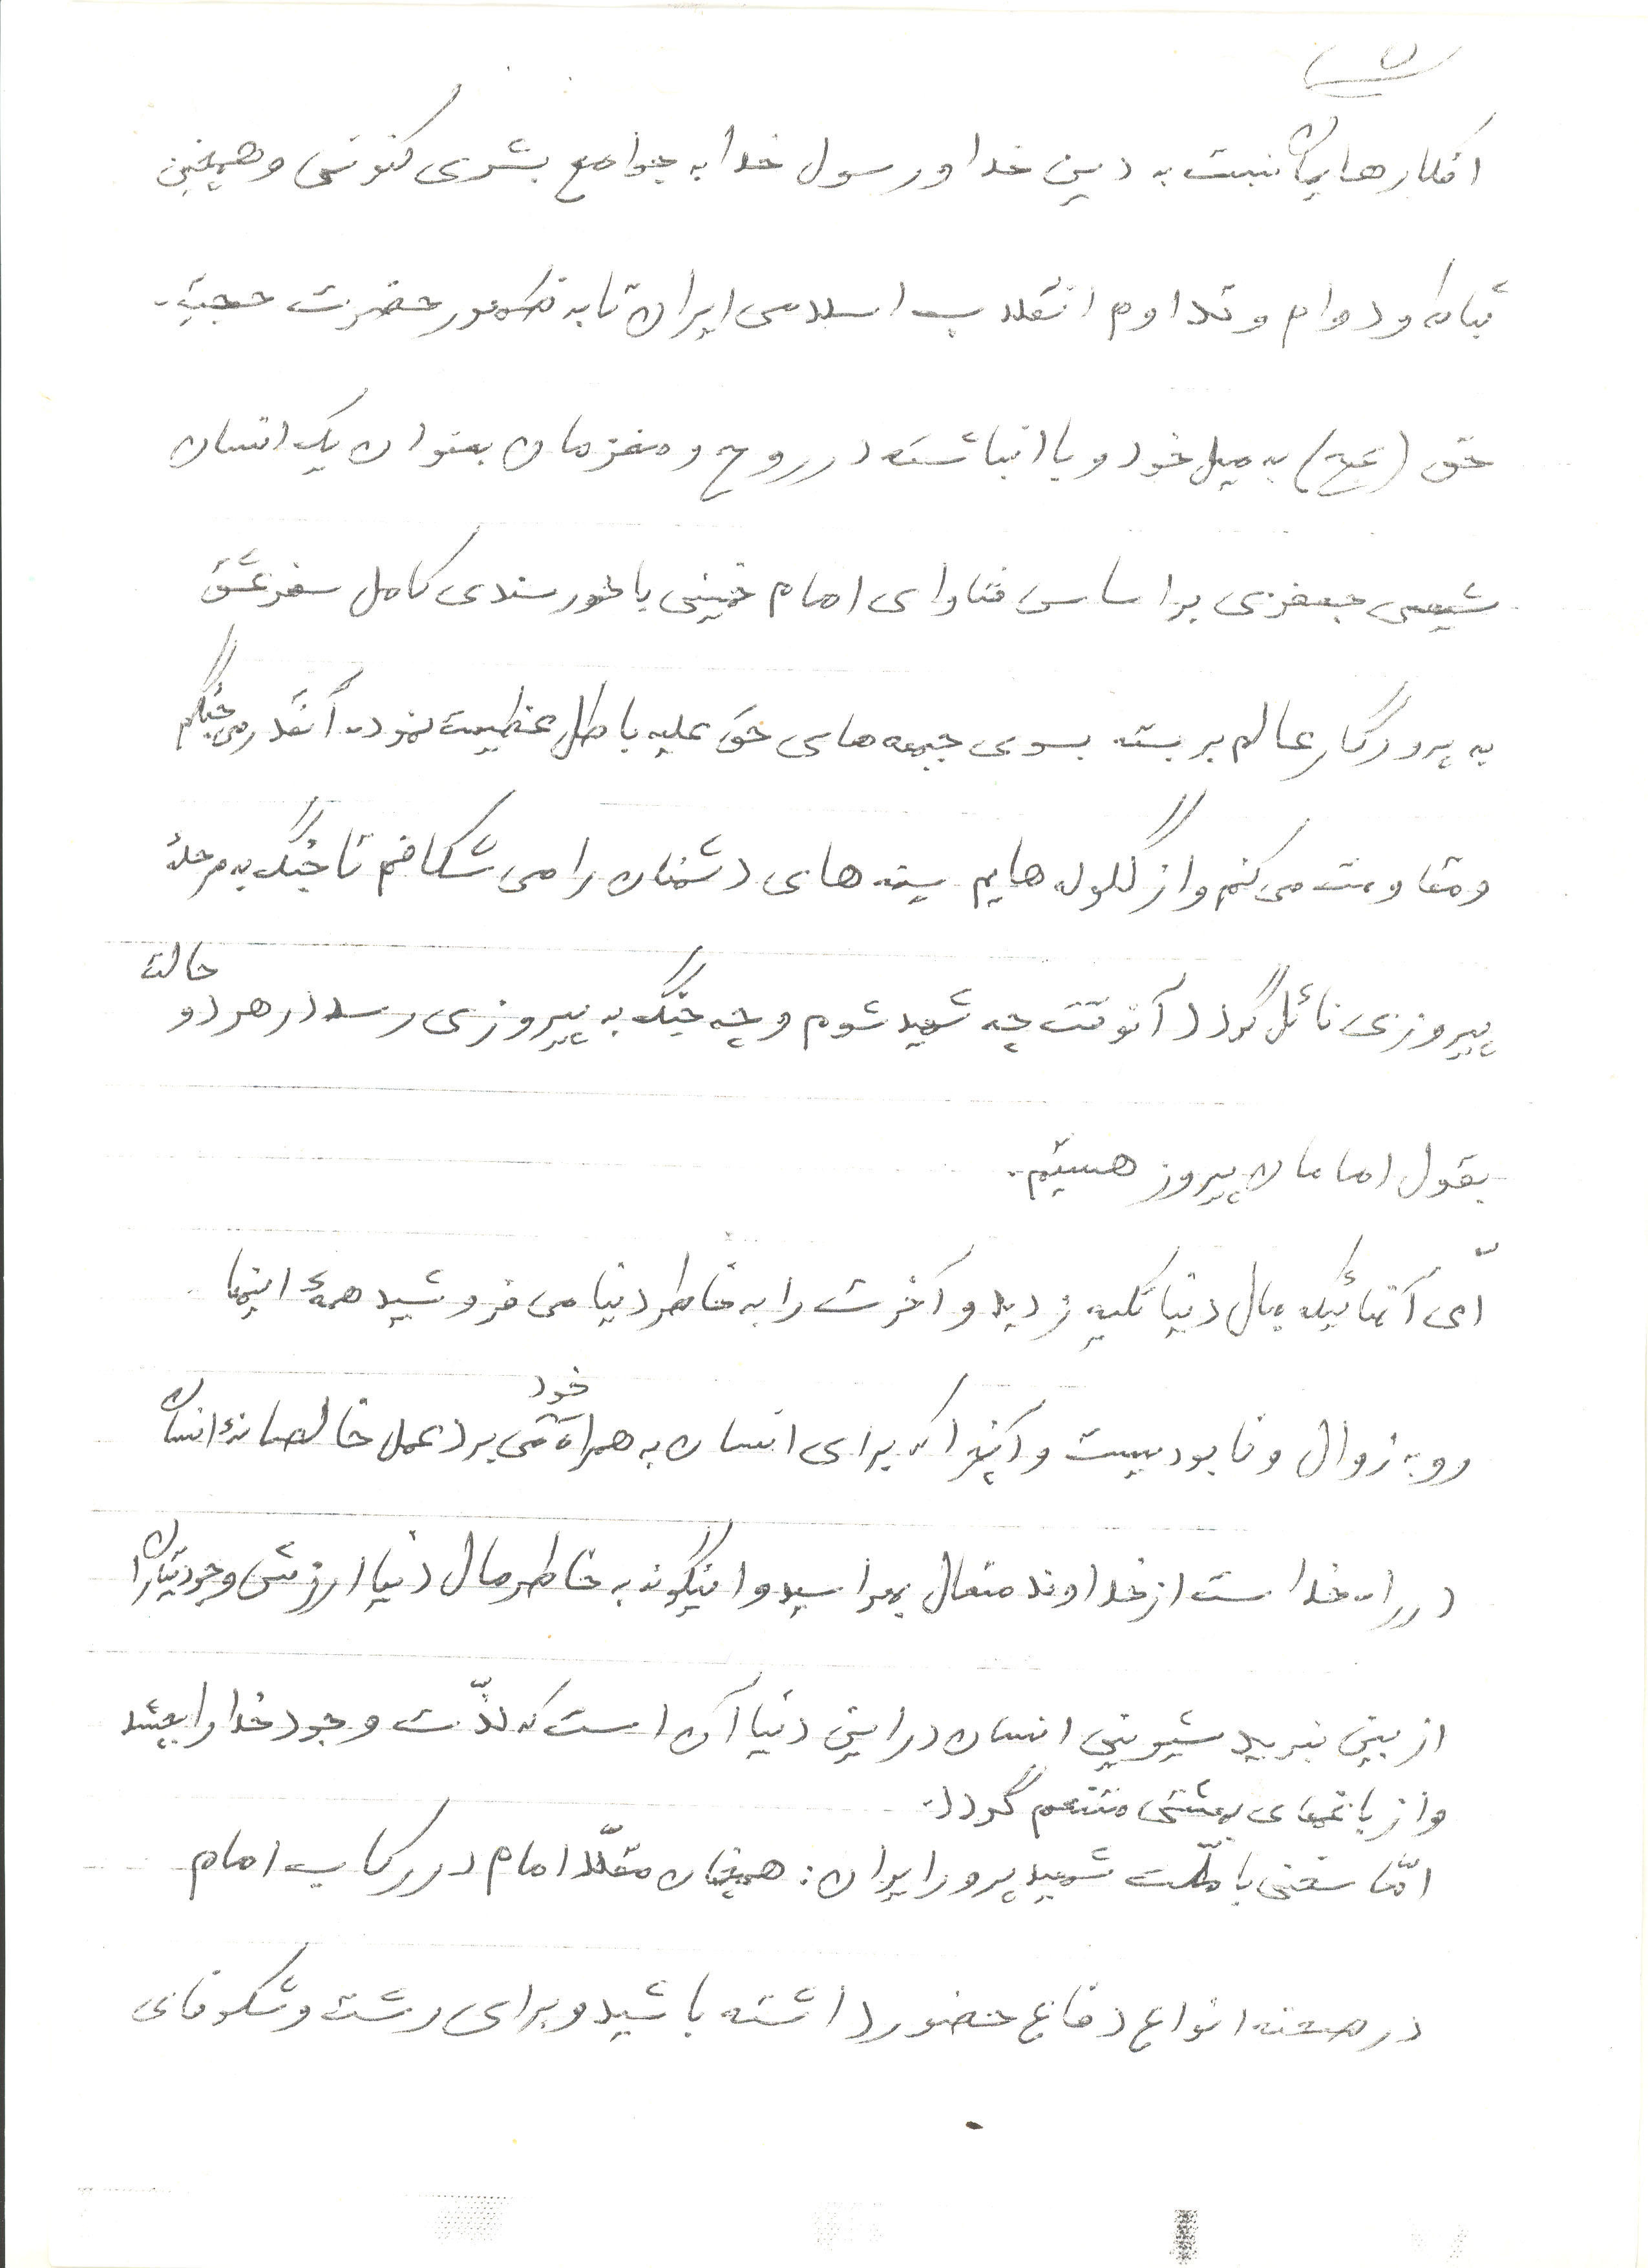 افکارهایمان نسبت به دین خدا و رسول خدا به جوامع بشری کنونی و همچنین
ثبات و دوام و تداوم انقلاب اسلامی ایران تا به ظهور حضرت حجت
حق (عج) به میل خود و با انباشته در روح و مغزمان بعنوان یک انسان
شیعی جعفری براساس فتاوای امام خمینی با خورسندی کامل سفر عشق
به پروردگار عالم بر بسته بسوی جبهه های حق علیه باطل عظیمت نموده آنقدر می جنگم
و مقاومت می کنم و از گلوله هایم سینه های دشمنان را می شکافم تا جنگ به مرحلهٔ
پیروزی نائل گردد آنوقت چه شهید شوم و چه جنگ به پیروزی رسد در هر دو حالت
بقول اماممان پیروز هستیم.
ای آنهائیکه به مال دنیا تکیه زدید و آخرت را به خاطر دنیا می فروشید همهٔ اینها
رو به زوال و نابودیست و آنچه را که برای انسان به همراه خود می برد عمل خالصانهٔ انسان
در راه خداست از خداوند متعال بهراسید و اینگونه به خاطر مال دنیا ارزش وجودیتان را
از بین نبرید شیرینی انسان در این دنیا آن است که لذّت وجود خدا را بچشد
و از باغهای بهشتی متنعم گردد.
امّا سخنی با ملّت شهیدپرور ایران: همچنان مقلّد امام در رکاب امام
در صحنه انواع دفاع حضور داشته باشید و برای رشد و شکوفای